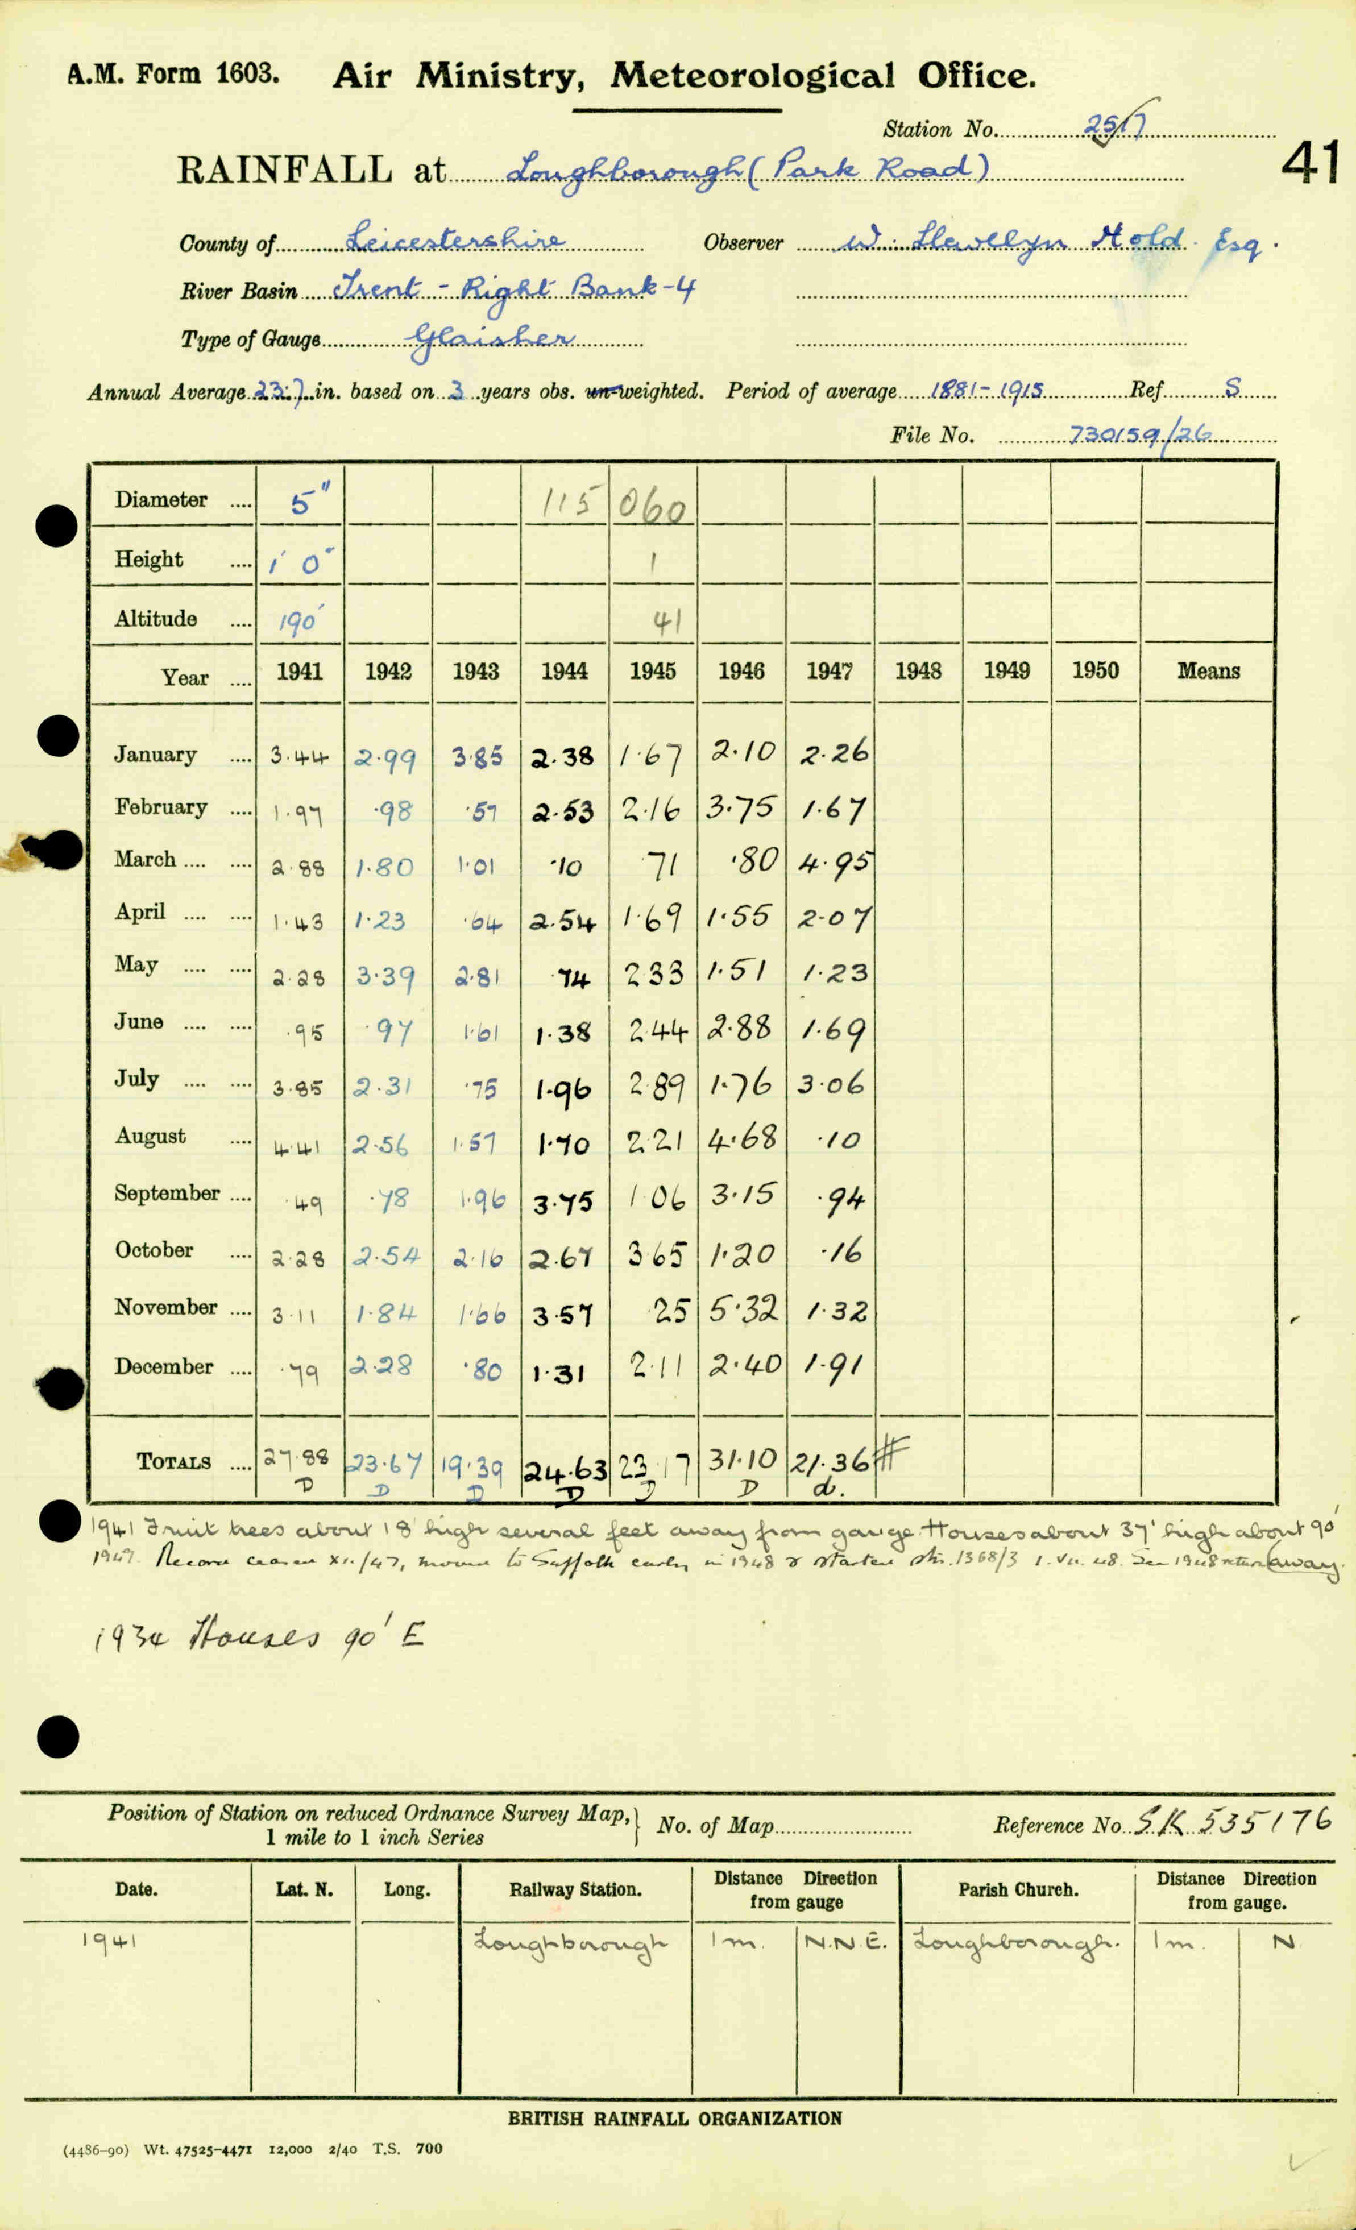 A.M. Form 1603. Air Ministry, Meteorological Office.
Station No. 2517
41
RAINFALL at Loughborough (Park Road)
County of Leicestershire Observer W. Llewellyn Hold Esq.
River Basin Trent - Right Bank-4
Type of Gauge Glaisher
Annual Average 23.7 in. based on 3 years obs. un-weighted. Period of average 1881-1915 Ref. S
File No. 730159/26
Diameter .... 5" 115 060
Height .... 1' 0" 1
Altitude .... 190' 41
Year .... 1941 1942 1943 1944 1945 1946 1947 1948 1949 1950 Means
January .... 3.44 2.99 3.85 2.38 1.67 2.10 2.26
February .... 1.97 .98 .57 2.53 2.16 3.75 1.67
March .... .... 2.88 1.80 1.01 .10 71 .80 4.95
April .... .... 1.43 1.23 .64 2.54 1.69 1.55 2.07
May .... .... 2.28 3.39 2.81 .74 2 33 1.51 1.23
June .... .... .95 .97 1.61 1.38 2.44 2.88 1.69
July .... .... 3.85 2.31 .75 1.96 2.89 1.76 3.06
August .... 4.41 2.56 1.57 1.70 2.21 4.68 .10
September .... .49 .78 1.96 3.75 1.06 3.15 .94
October .... 2.28 2.54 2.16 2.67 3.65 1.20 .16
November .... 3.11 1.84 1.66 3.57 25 5.32 1.32
December .... .79 2.28 .80 1.31 2.11 2.40 1.91
TOTALS .... 27.88 23.67 19.39 24.63 23.17 31.10 21.36 #
D D D D D D d.
1941 Fruit trees about 18' high several feet away from gauge. Houses about 37' high about 90'
1947. Record ceased XII/47, moved to Suffolk early in 1948 & started stn. 1368/3 1.VII.48. See 1948 return (away.
1934 Houses 90' E
Position of Station on reduced Ordnance Survey Map, } No. of Map Reference No. S.K. 535176
1 mile to 1 inch Series
Date. Lat. N. Long. Railway Station. Distance Direction from gauge Parish Church. Distance Direction from gauge.
1941 Loughborough 1 m. N.N.E. Loughborough. 1 m. N
BRITISH RAINFALL ORGANIZATION
(4486-90) Wt. 47525-4471 12,000 2/40 T.S. 700